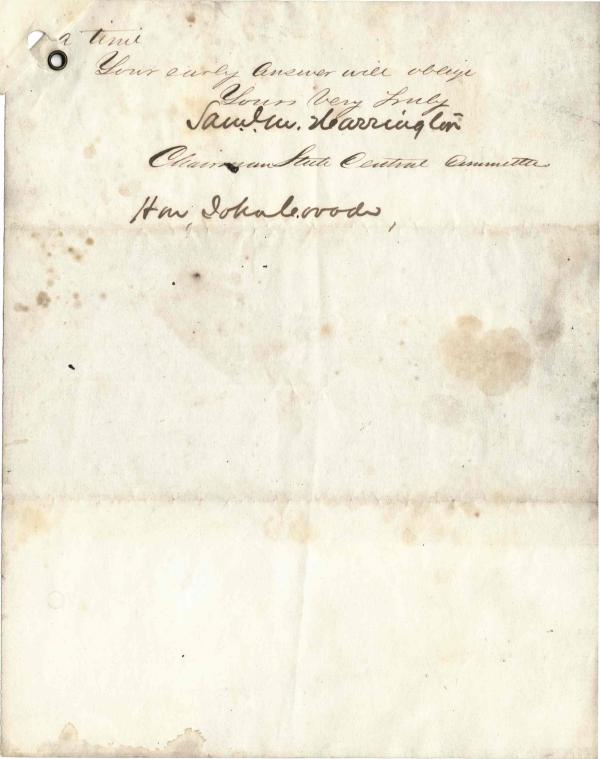 a time
Your early answer will oblige
Yours Very truly
Saml. M. Harrington
Chairman State Central Committee
Hon, John Covode,